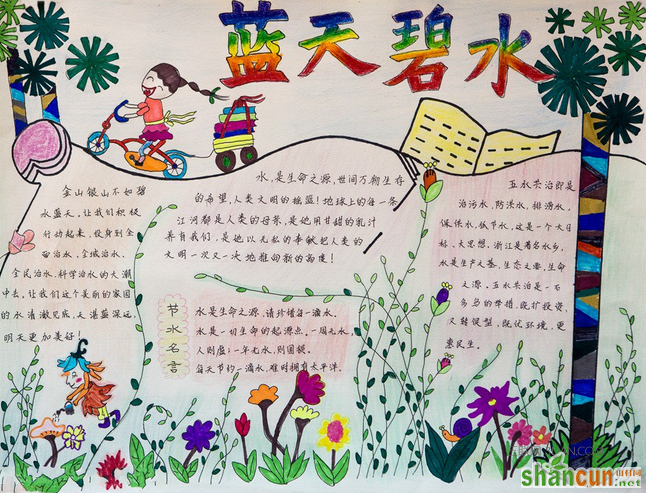 蓝天碧水
金山银山不如碧
水蓝天。让我们积极
行动起来，投身到全
面治水、全域治水、
全民治水、科学治水的大潮
中去。让我们这个美丽的家园
的水清澈见底，天湛蓝深远，
明天更加美好！
水，是生命之源，世间万物生存
的希望，人类文明的摇蓝！地球上的每一条
江河都是人类的母亲，是她用甘甜的乳汁
养育我们，是她以无私的奉献把人类的
文明一次又一次地推向新的高度！
节水名言
水是生命之源，请珍惜每一滴水。
水是一切生命的起源点。一周无水，
人则愁；一年无水，则国损。
每天节约一滴水，难时拥有太平洋。
五水共治即是
治污水、防洪水、排涝水、
保供水、抓节水，这是一个大目
标、大思想。浙江是著名水乡，
水是生产之基，生态之要，生命
之源。五水共治是一石
多鸟的举措，既扩投资
又转促型，既优环境，更
惠民生。
shancun
山村网
.net